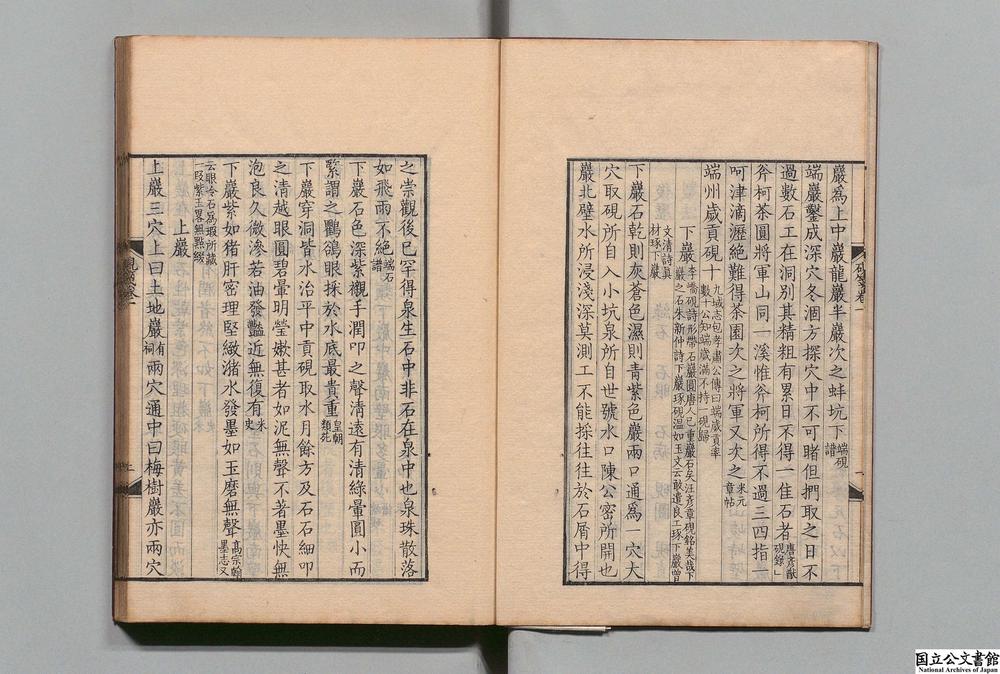 巖爲上中巖龍巖半巖次之蚌坑下端硯譜
端巖鑿成深穴冬涸方探穴中不可睹但捫取之日不
過數石工在洞別其精粗有累日不得一佳石者唐彥猷硯錄
斧柯茶園將軍山同一溪惟斧柯所得不過三四指一
呵津滴瀝絶難得茶園次之將軍又次之米元章帖
端州歲貢硯十九域志包孝肅公傳曰端歲貢率數十公知端歲滿不持一硯歸
下巖李嶠硯詩形帶石巖圓唐人已重巖石矣汪彥章硯銘美哉下巖之石朱新仲詩下巖琢硯溫如玉文云敢遣良工琢下巖曾
文清詩眞材琢下巖
下巖石乾則灰蒼色濕則青紫色巖兩口通爲一穴大
穴取硯所自入小坑泉所自世號水口陳公密所開也
巖北壁水所浸淺深莫測工不能採往往於石屑中得
之崇觀後已罕得泉生石中非石在泉中也泉珠散落
如飛雨不絶端石譜
下巖石色深紫襯手潤叩之聲清遠有清綠暈圓小而
緊謂之鸜鵒眼採於水底最貴重皇朝類苑
下巖穿洞皆水治平中貢硯取水月餘方及石石細叩
之清越眼圓碧暈明瑩嫩甚者如泥無聲不著墨快無
泡良久微滲若油發豔近無復有米史
下巖紫如猪肝密理堅緻瀦水發墨如玉磨無聲髙宗翰墨志又
云眼今石爲瑕所藏一段紫玉畧無點綴
上巖
上巖三穴上曰土地巖有祠兩穴通中曰梅樹巖亦兩穴
硯箋卷一
一
硯箋卷一
二
国立公文書館
National Archives of Japan